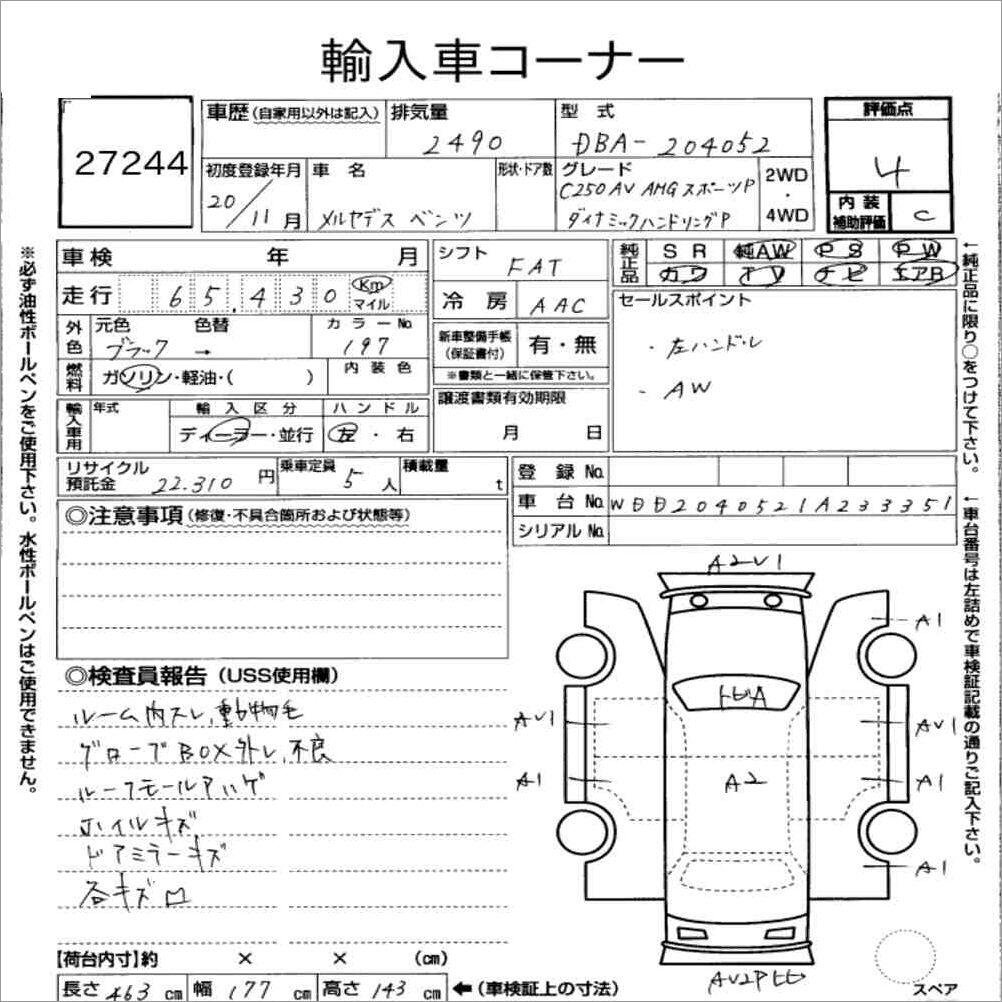 輸入車コーナー
27244
車歴(自家用以外は記入) 排気量 2490 型式 DBA-204052 評価点 4
初度登録年月 20/11月 車名 メルセデス ベンツ 形状・ドア数 グレード C250 AV AMG スポーツP ダイナミックハンドリングP 2WD・4WD
内装補助評価 C
車検 年 月 シフト FAT 純正品 SR 純AW PS PW
カワ TV ナビ エアB
走行 65,430 Km マイル 冷房 AAC セールスポイント
外色 元色 ブラック 色替 → カラーNo. 197 新車整備手帳(保証書付) 有・無
※書類と一緒に保管下さい。
・左ハンドル
・AW
燃料 ガソリン・軽油・( ) 内装色
譲渡書類有効期限 月 日
輸入車用 年式 輸入区分 ディーラー・並行 ハンドル 左・右
リサイクル預託金 22,310円 乗車定員 5人 積載量 t
登録No.
車台No. WDD2040521A233351
シリアルNo.
◎注意事項(修復・不具合箇所および状態等)
◎検査員報告(USS使用欄)
ルーム内スレ、動物毛
グローブBOX外レ、不良
ルーフモールアハゲ
ホイルキズ
ドアミラーキズ
各キズロ
A2V1
A1
トビA
AV1 AV1
A1 A2 A1
A1
AV2P
【荷台内寸】約 × × (cm)
長さ 463 cm 幅 177 cm 高さ 143 cm ←(車検証上の寸法)
スペア
※必ず油性ボールペンをご使用下さい。水性ボールペンはご使用できません。
←純正品に限り○をつけて下さい。
←車台番号は左詰めで車検証記載の通りご記入下さい。